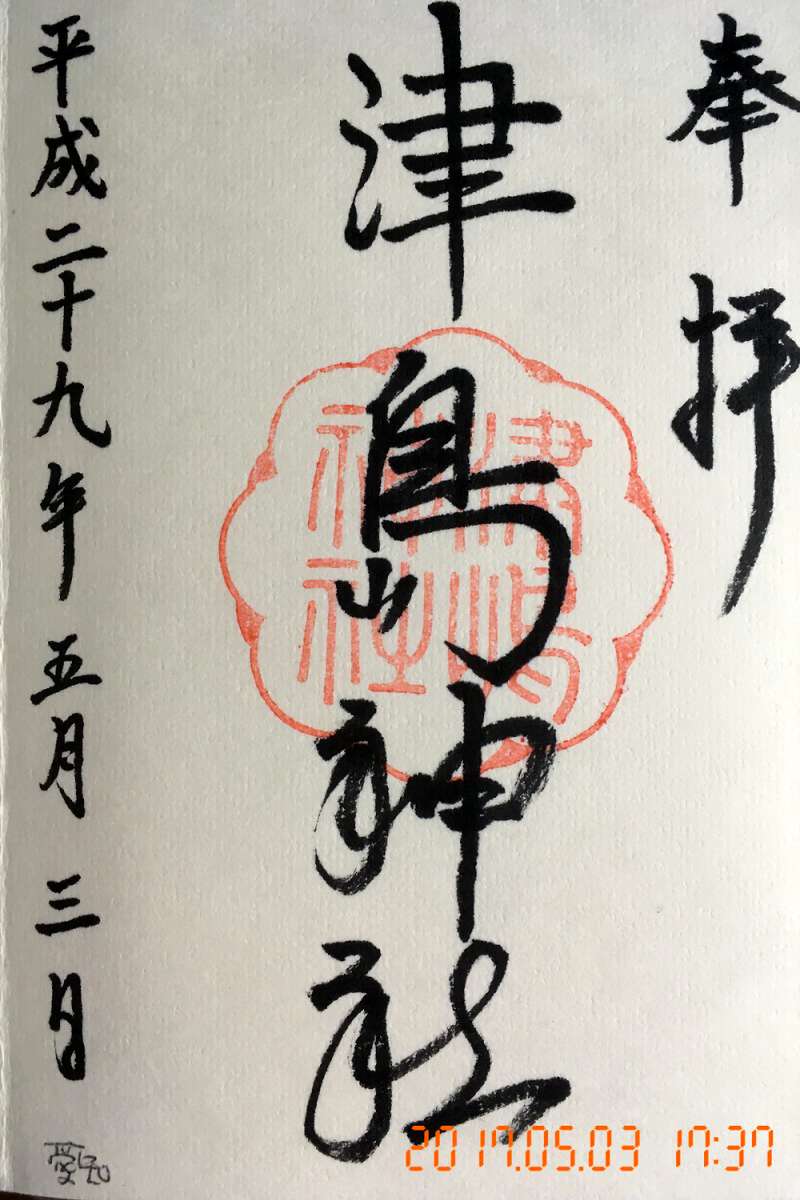 奉拝
津島神社
津嶋神社
平成二十九年五月三日
2017.05.03 17:37